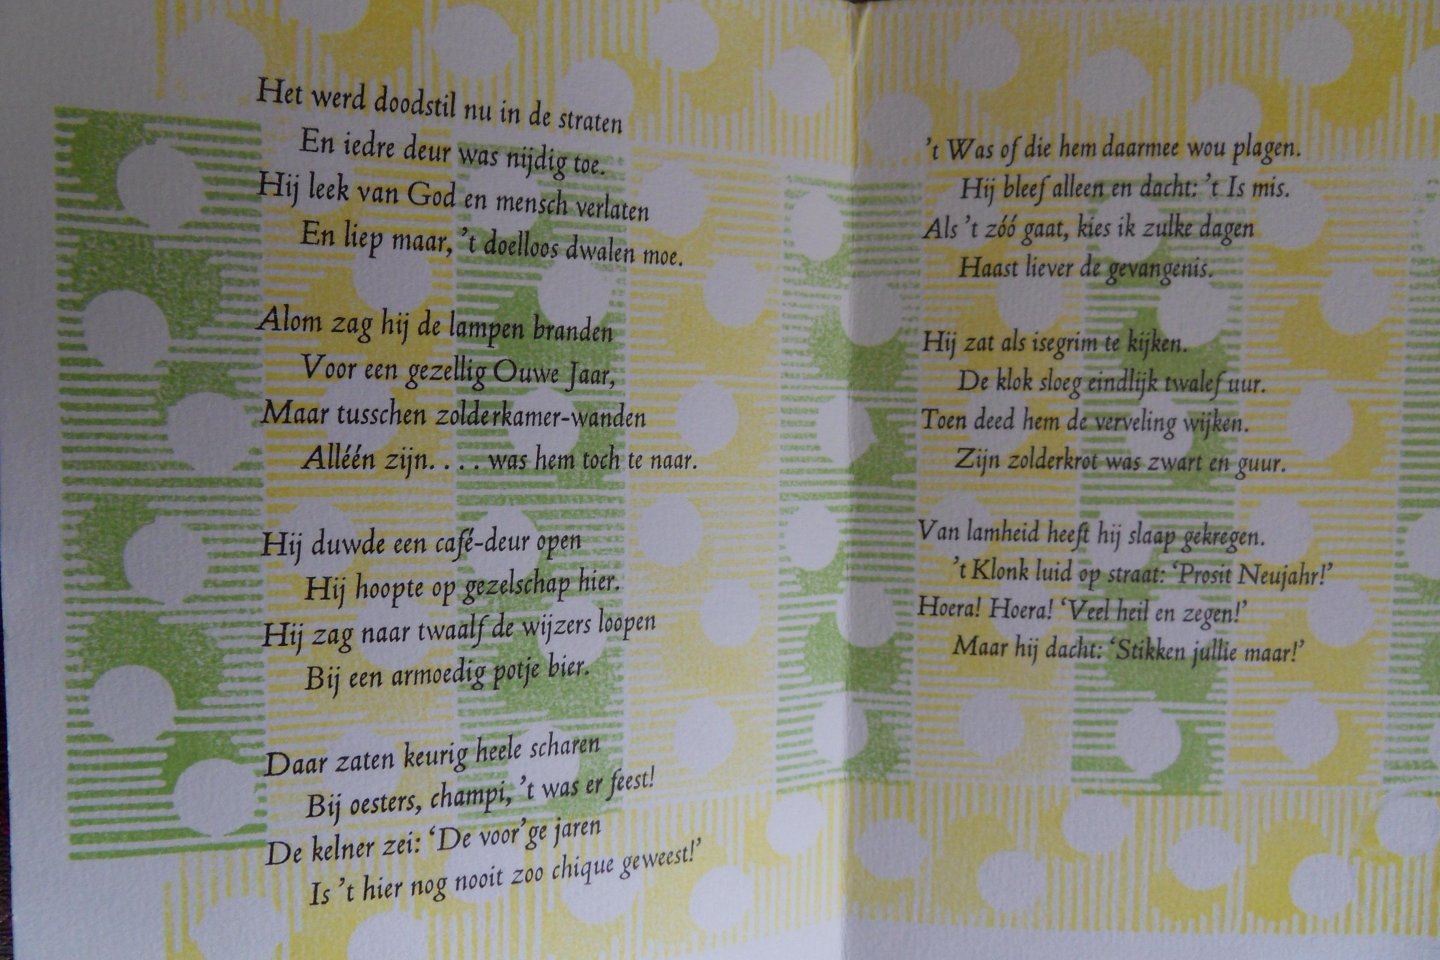 Het werd doodstil nu in de straten
En iedre deur was nijdig toe.
Hij leek van God en mensch verlaten
En liep maar, 't doelloos dwalen moe.
Alom zag hij de lampen branden
Voor een gezellig Ouwe Jaar,
Maar tusschen zolderkamer-wanden
Alléén zijn. . . . was hem toch te naar.
Hij duwde een café-deur open
Hij hoopte op gezelschap hier.
Hij zag naar twaalf de wijzers loopen
Bij een armoedig potje bier.
Daar zaten keurig heele scharen
Bij oesters, champi, 't was er feest!
De kelner zei: ‘De voor'ge jaren
Is 't hier nog nooit zoo chique geweest!’
't Was of die hem daarmee wou plagen.
Hij bleef alleen en dacht: 't Is mis.
Als 't zóó gaat, kies ik zulke dagen
Haast liever de gevangenis.
Hij zat als isegrim te kijken.
De klok sloeg eindlijk twalef uur.
Toen deed hem de verveling wijken.
Zijn zolderkrot was zwart en guur.
Van lamheid heeft hij slaap gekregen.
't Klonk luid op straat: ‘Prosit Neujahr!’
Hoera! Hoera! ‘Veel heil en zegen!’
Maar hij dacht: ‘Stikken jullie maar!’